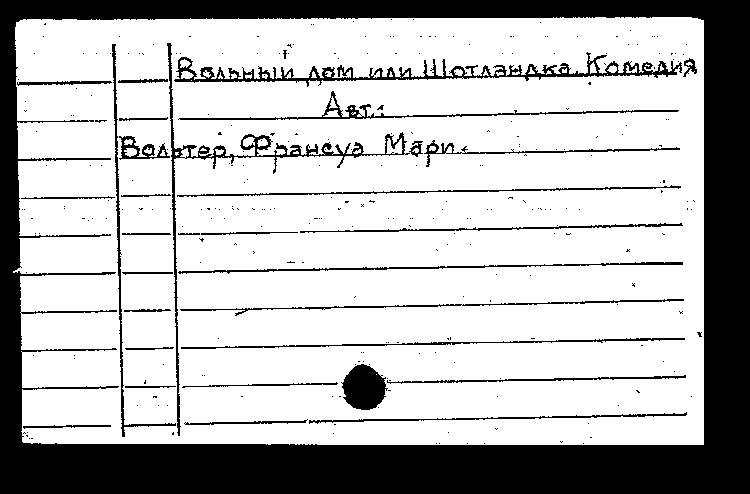 Вольный дом или Шотландка. Комедия
Авт.:
Вольтер, Франсуа Мари.